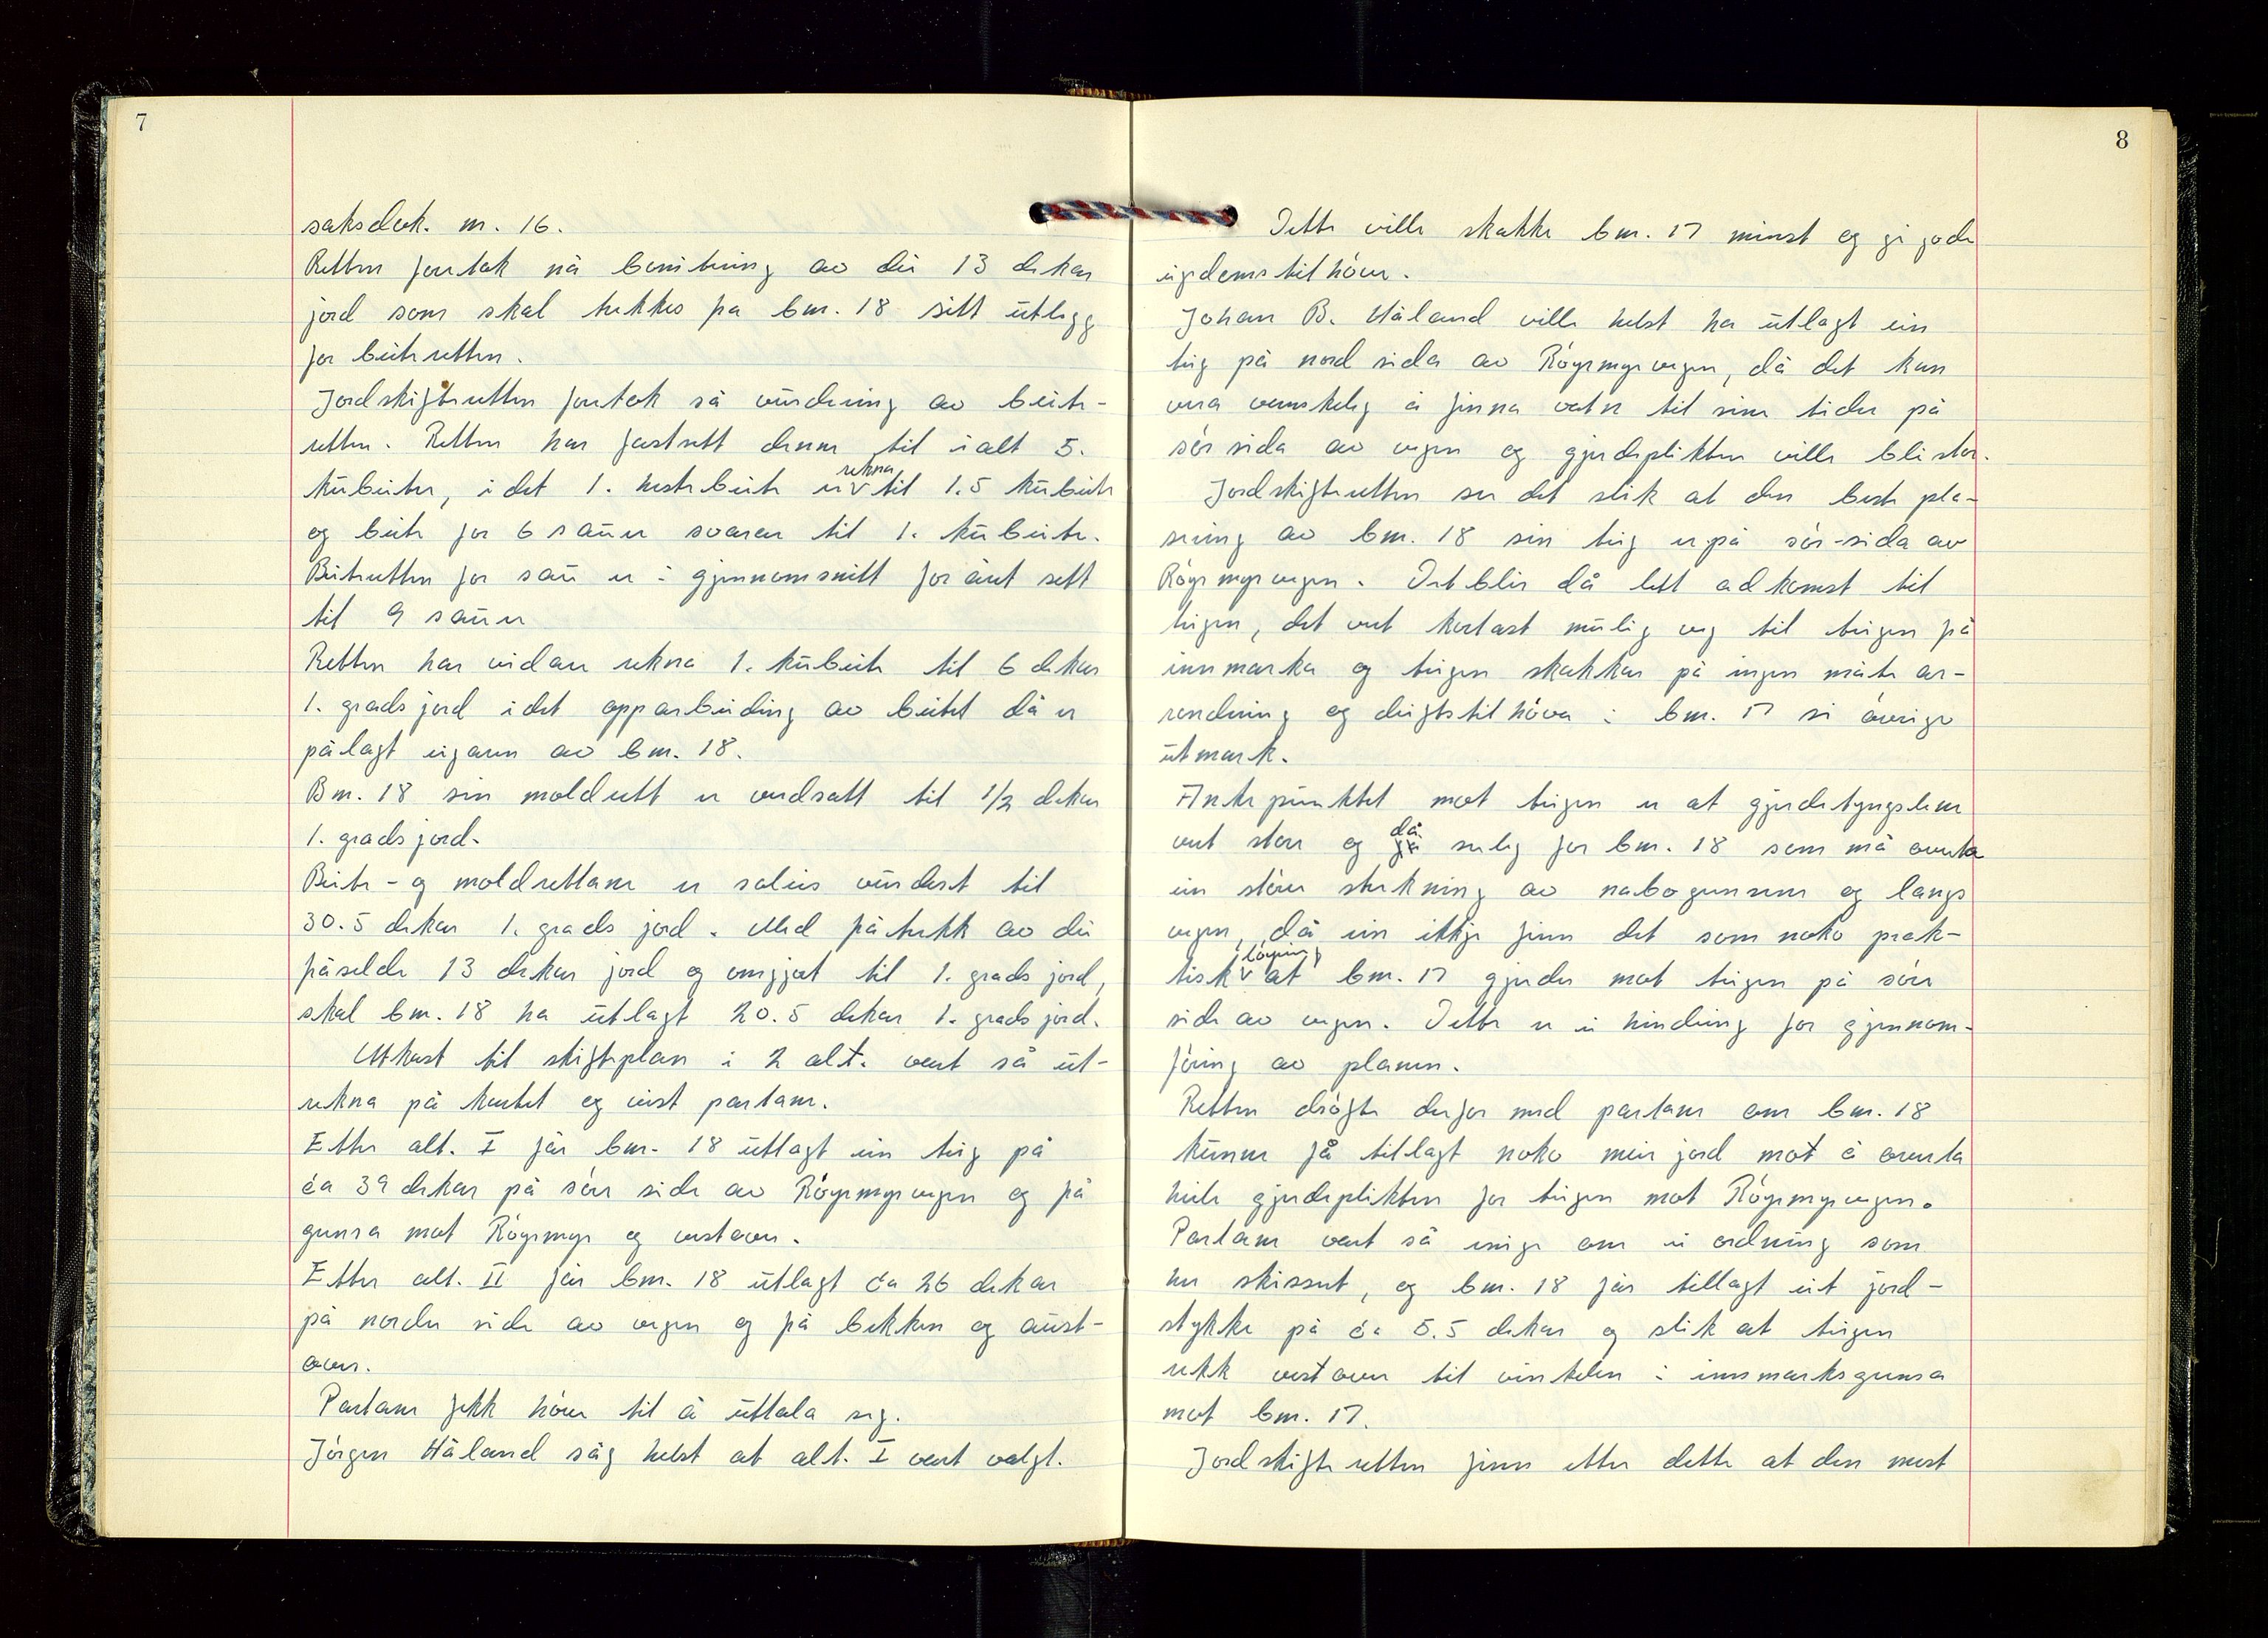 7
saksdok. nr. 16.
Retten foretok nå bonitering av dei 13 dekar
jord som skal trekkes på bnr. 18 sitt utlegg
for beiteretten.
Jordskifteretten foretok så vurdering av beite-
retten. Retten har fastsett denne til ialt 5.
kubeiter, i det 1. hestebeite er rekna til 1.5 kubeite
og beite for 6 sauer svarer til 1. kubeite.
Beiteretten for sau er i gjennomsnitt for året sett
til 9 sauer
Retten har vidare rekna 1. kubeite til 6 dekar
1. grads jord i det opparbeiding av beitet då er
pålagt eigaren av bnr. 18.
Bnr. 18 sin moldrett er verdsatt til 1/2 dekar
1. grads jord.
Beite- og moldrettane er soleis vurdert til
30.5 dekar 1. grads jord. Med påtrekk av dei
påselde 13 dekar jord og omgjort til 1. grads jord,
skal bnr. 18 ha utlagt 20.5 dekar 1. grads jord.
Utkast til skifteplan i 2 alt. vert så ut-
rekna på kartet og vist partane.
Etter alt. I får bnr. 18 utlagt ein teig på
ca 39 dekar på søre side av Røyrmyrvegen og på
grensa mot Røyrmyr og vestover.
Etter alt. II får bnr. 18 utlagt ca 26 dekar
på nordre side av vegen og på bekken og aust-
over.
Partane fekk høve til å uttala seg.
Jørgen Håland såg helst at alt. I vert valgt.
8
Dette ville skakke bnr. 17 minst og gi gode
eigedomstilhøve.
Johan B. Håland ville helst ha utlagt ein
teig på nordsida av Røyrmyrvegen, då det kan
vera vanskeleg å finna vatn til sine tider på
sørsida av vegen og gjerdeplikten ville bli stor.
Jordskifteretten ser det slik at den beste pla-
sering av bnr. 18 sin teig er på sør-sida av
Røyrmyrvegen. Det blir då lett adkomst til
teigen, det vert kortast mulig veg til teigen på
innmarka og teigen skakkar på ingen måte ar-
rondering og driftstilhøva i bnr. 17 si øvrige
utmark.
Ankepunktet mot teigen er at gjerdetyngslene
vert store og då særleg for bnr. 18 som må overta
ein større strekning av nabogrensene og langs
vegen, då ein ikkje finn det som noko prak-
tisk løysing at bnr. 17 gjerder mot teigen på søre
side av vegen. Dette er ei hindring for gjennom-
føring av planen.
Retten drøfte derfor med partane om bnr. 18
kunne få tillagt noko meir jord mot å overta
heile gjerdeplikten for teigen mot Røyrmyrvegen.
Partane vert så einige om ei ordning som
her skissert, og bnr. 18 får tillagt eit jord-
stykke på ca 5.5 dekar og slik at teigen
rekk vestover til vinkelen i innmarksgrensa
mot bnr. 17.
Jordskifteretten finn etter dette at den mest